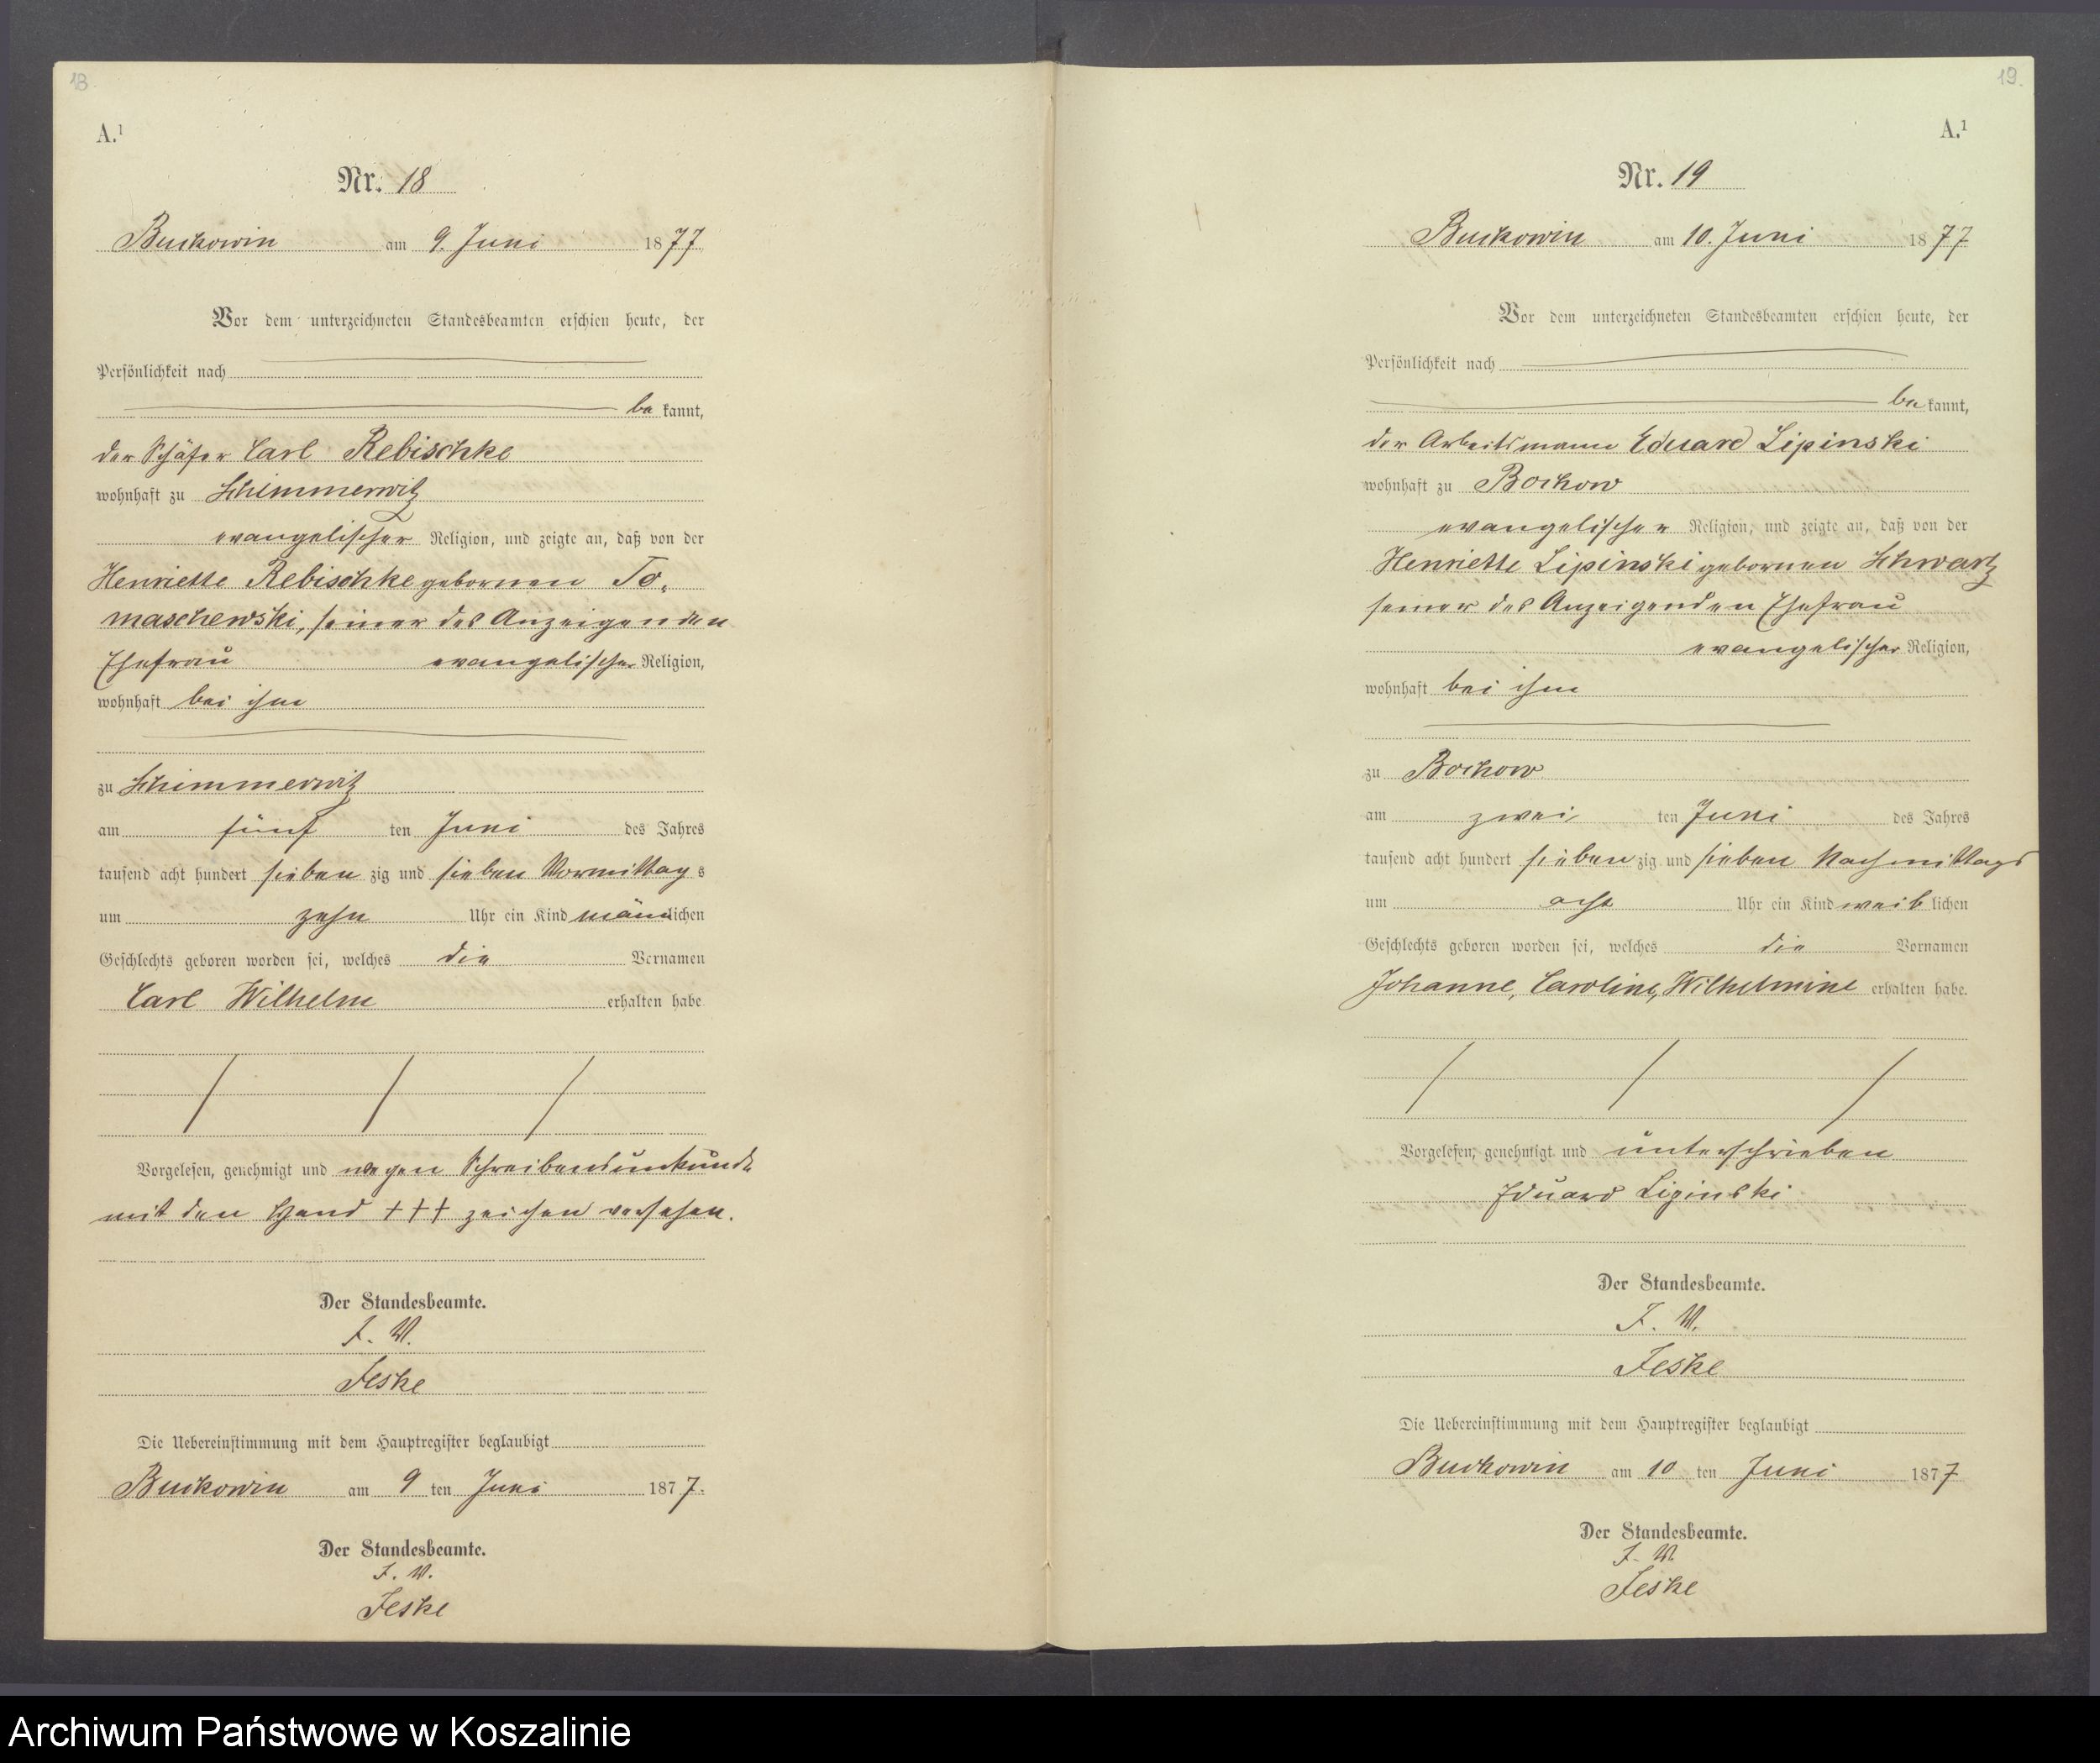 18.
A.¹
Nr. 18
Buckowin am 9. Juni 1877
Vor dem unterzeichneten Standesbeamten erschien heute, der
Persönlichkeit nach
bekannt,
der Schäfer Carl Rebischke
wohnhaft zu Schimmerwitz
evangelischer Religion, und zeigte an, daß von der
Henriette Rebischke gebornen To-
maschewski, seiner des Anzeigenden
Ehefrau evangelischer Religion,
wohnhaft bei ihm
zu Schimmerwitz
am fünf ten Juni des Jahres
tausend acht hundert sieben zig und sieben Vormittags
um zehn Uhr ein Kind männlichen
Geschlechts geboren worden sei, welches die Vornamen
Carl Wilhelm erhalten habe
Vorgelesen, genehmigt und wegen Schreibensunkunde
mit den Hand +++ zeichen versehen.
Der Standesbeamte.
I. V.
Jeske
Die Uebereinstimmung mit dem Hauptregister beglaubigt
Buckowin am 9 ten Juni 1877.
Der Standesbeamte.
I. V.
Jeske
19.
A.¹
Nr. 19
Buckowin am 10. Juni 1877
Vor dem unterzeichneten Standesbeamten erschien heute, der
Persönlichkeit nach
bekannt,
der Arbeitsmann Eduard Lipinski
wohnhaft zu Bochow
evangelischer Religion, und zeigte an, daß von der
Henriette Lipinski gebornen Schwartz
seiner des Anzeigenden Ehefrau
evangelischer Religion,
wohnhaft bei ihm
zu Bochow
am zwei ten Juni des Jahres
tausend acht hundert sieben zig und sieben Nachmittags
um acht Uhr ein Kind weiblichen
Geschlechts geboren worden sei, welches die Vornamen
Johanne, Caroline, Wilhelmine erhalten habe.
Vorgelesen, genehmigt und unterschrieben
Eduard Lipinski
Der Standesbeamte.
I. V.
Jeske
Die Uebereinstimmung mit dem Hauptregister beglaubigt
Buckowin am 10 ten Juni 1877
Der Standesbeamte.
I. V.
Jeske
Archiwum Państwowe w Koszalinie